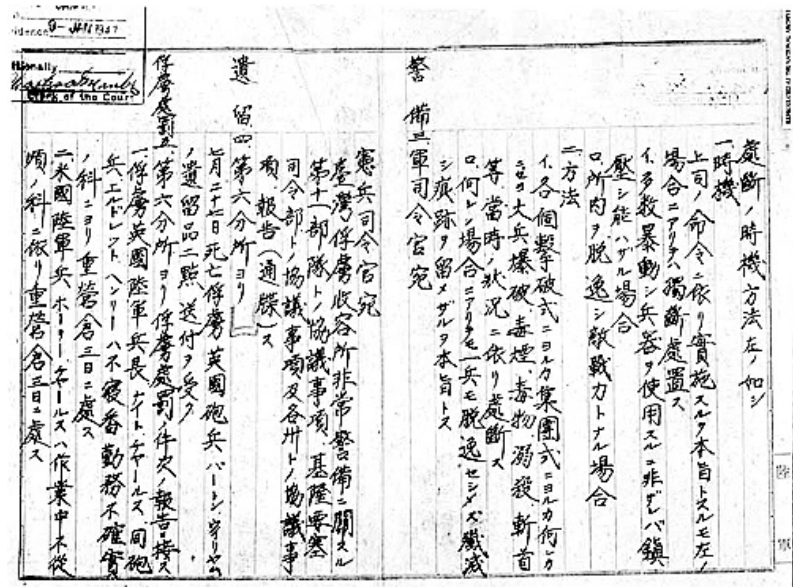 idence
Clerk of the Court
處斷ノ時機方法左ノ如シ
一時機
上司ノ命令ニ依リ實施スルヲ本旨トスルモ左ノ
場合ニアリテハ獨斷處置ス
イ、多数暴動シ兵器ヲ使用スルニ非ザレバ鎮
壓シ能ハザル場合
ロ所内ヲ脱逸シ敵戰力トナル場合
二方法
イ、各個撃破式ニヨルカ集團式ニヨルカ何レカ
ニセヨ大兵爆破、毒煙、毒物、溺殺、斬首
等當時ノ状況ニ依リ處斷ス
ロ、何レノ場合ニアリテモ一兵モ脱逸セシメズ殲滅
シ痕跡ヲ留メザルヲ本旨トス
警備三軍司令官宛
憲兵司令官宛
臺灣俘虜收容所非常警備ニ關スル
第十一部隊トノ協議事項、基隆要塞
司令部トノ協議事項及各州トノ協議事
項、報告(通牒)ス
遺留四第六分所ヨリ
七月二十七日死亡俘虜英國砲兵バートン
ノ遺留品二點、送付ヲ受ク
俘虜處罰五第六分所ヨリ俘虜處罰ノ件次ノ報告ニ接ス
一俘虜英國陸軍兵長ナイト、チャールス、同砲
兵エルドレット ヘンリーハ不寝番勤務不確實
ノ科ニヨリ重營倉三日ニ處ス
二米國陸軍兵 チャールスハ作業中不從
順ノ科ニ依リ重營倉三日ニ處ス
陸軍